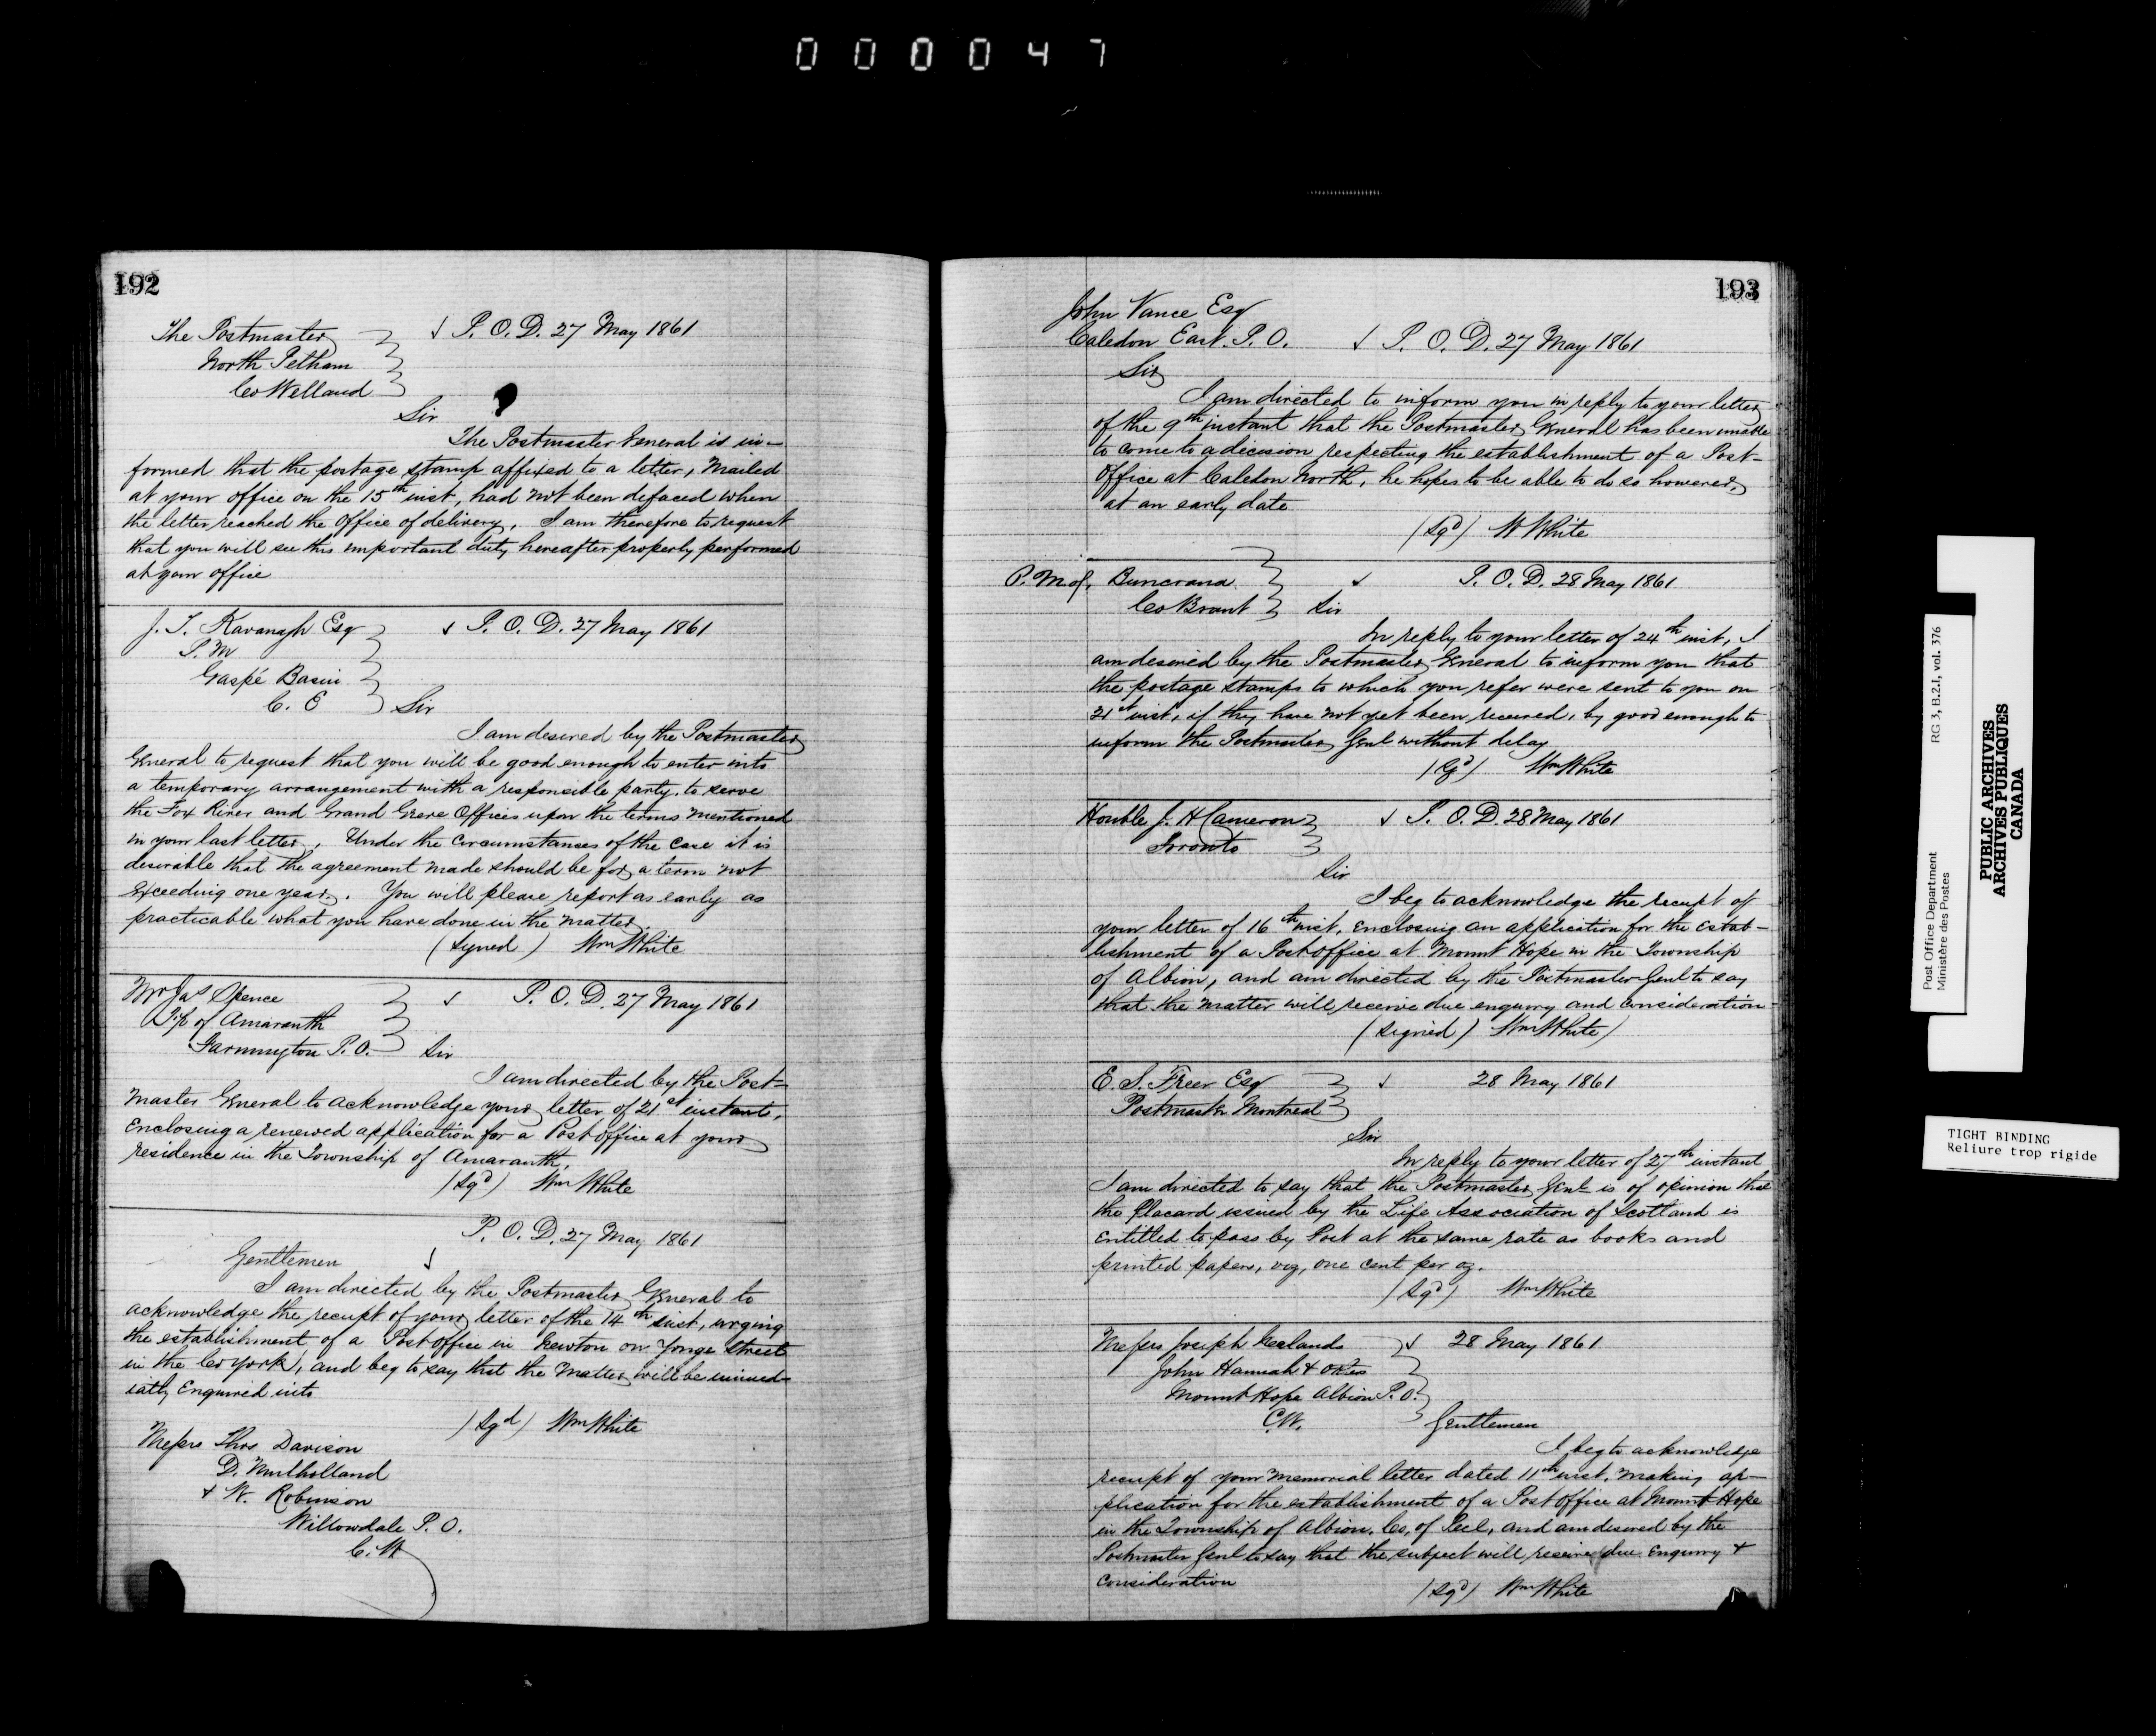 000047
192
The Postmaster
North Pelham
Co Welland
P. O. D. 27 May 1861
Sir
The Postmaster General is in-
formed that the postage stamp affixed to a letter, mailed
at your office on the 15th inst, had not been defaced when
the letter reached the office of delivery. I am therefore to request
that you will see this important duty hereafter properly performed
at your office
J. T. Kavanagh Esq
P. M
Gaspé Basin
C. E
P. O. D. 27 May 1861
Sir
I am desired by the Postmaster
General to request that you will be good enough to enter into
a temporary arrangement with a responsible party, to serve
the Fox River and Grand Greve Offices upon the terms mentioned
in your last letter. Under the circumstances of the case it is
desirable that the agreement made should be for a term not
exceeding one year. You will please report as early as
practicable what you have done in the matter
(signed) Wm White
Mr Jas Spence
T.p of Amaranth
Farmington P. O.
P. O. D. 27 May 1861
Sir
I am directed by the Post-
master General to acknowledge your letter of 21st instant,
enclosing a renewed application for a Post office at your
residence in the Township of Amaranth.
(Sgd) Wm White
P. O. D. 27 May 1861
Gentlemen
I am directed by the Postmaster General to
acknowledge the receipt of your letter of the 14th inst, urging
the establishment of a Post office in Newton on Yonge Street
in the Co York, and beg to say that the matter will be immed-
iatly Enquired into
(Sgd) Wm White
Messrs Thos Davison
D. Mulholland
+ W. Robinson
Willowdale P. O.
C. W
193
John Vance Esq
Caledon East. P. O.
P. O. D. 27 May 1861
Sir
I am directed to inform you in reply to your letter
of the 9th instant that the Postmaster General has been unable
to come to a decision respecting the establishment of a Post-
Office at Caledon North, he hopes to be able to do so however,
at an early date
(Sgd) W White
P. M of, Buncrana
Co Brant
P. O. D. 28 May 1861
Sir
In reply to your letter of 24th inst, I
am desired by the Postmaster General to inform you that
the postage stamps to which you refer were sent to you on
21st inst, if they have not yet been received, by good enough to
inform the Postmaster Genl without delay
(Sgd) Wm White
Honble J. H Cameron
Toronto
P. O. D. 28 May 1861
Sir
I beg to acknowledge the receipt of
your letter of 16th inst, enclosing an application for the estab-
lishment of a Post office at Mount Hope in the Township
of Albion, and am directed by the Postmaster Genl to say
that the matter will receive due enquiry and consideration
(signed) Wm White)
E. S. Freer Esq
Postmaster Montreal
28 May 1861
Sir
In reply to your letter of 27th instant
I am directed to say that the Postmaster Genl is of opinion that
the Placard issued by the Life Association of Scotland is
Entitled to pass by Post at the same rate as books and
printed papers, viz, one cent per oz.
(Sgd) Wm White
Messrs Joseph
John Hannah & others
Mount Hope Albion P. O.
C.W.
28 May 1861
Gentlemen
I beg to acknowledge
receipt of your Memorial letter dated 11th inst. making ap-
plication for the establishment of a Post office at Mount Hope
in the Township of Albion, Co, of Peel, and am desired by the
Postmaster Genl to say that the subject will receive due Enquiry +
Consideration
(Sgd) Wm White
Post Office Department
Ministère des Postes
RG 3, B.2.I, vol. 376
PUBLIC ARCHIVES
ARCHIVES PUBLIQUES
CANADA
TIGHT BINDING
Reliure trop rigide